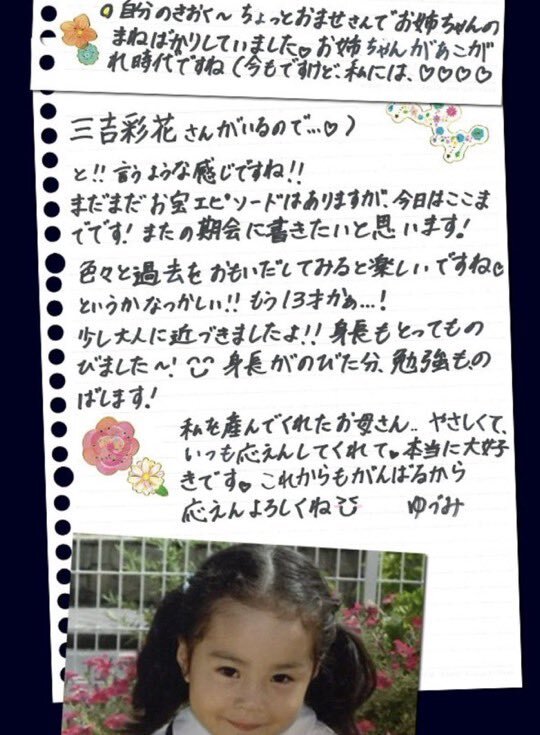 自分のきおく～ちょっとおませさんでお姉ちゃんの
まねばかりしていました♥お姉ちゃんがあこが
れ時代ですね(今もですけど、私には、♡♡♡♡
三吉彩花さんがいるので…♡)
と!!言うような感じですね!!
まだまだお宝エピソードはありますが、今日はここま
でです!またの期会に書きたいと思います!
色々と過去をおもいだしてみると楽しいですね♡
というかなつかしい!!もう13才かぁ…!
少し大人に近づきましたよ!!身長もとってもの
びました～!身長がのびた分、勉強も、の
ばします!
私を産んでくれたお母さん..やさしくて、
いつも応えんしてくれて♥本当に大好
きです♥これからもがんばるから
応えんよろしくね ゆうみ